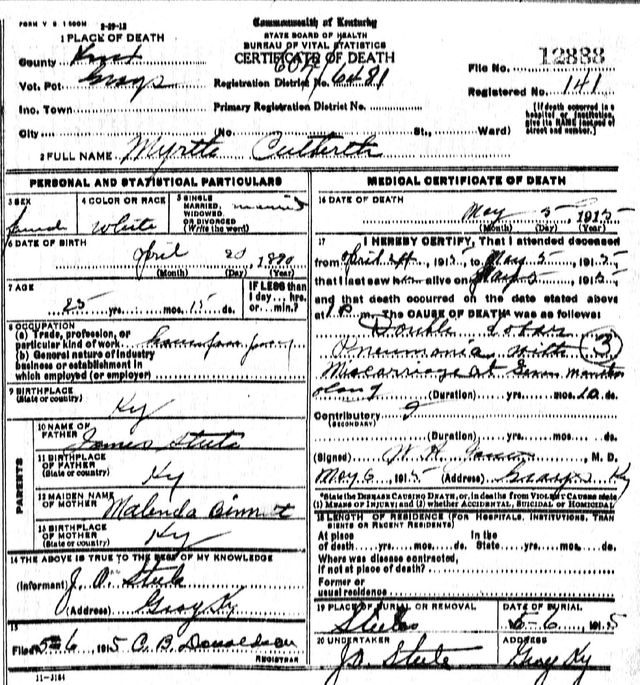 FORM V S 1 500M 2-29-12
Commonwealth of Kentucky
STATE BOARD OF HEALTH
BUREAU OF VITAL STATISTICS
CERTIFICATE OF DEATH
1 PLACE OF DEATH
County Knox
Vot. Pct Grays
Inc. Town
City (No. St., Ward)
File No. 12888
Registration District No. 6481
Registered No. 141
Primary Registration District No.
[If death occurred in a
hospital or institution,
give its NAME instead of
street and number.]
2 FULL NAME Myrtle Cultereth
PERSONAL AND STATISTICAL PARTICULARS
3 SEX
4 COLOR OR RACE White
5 SINGLE
MARRIED, married
WIDOWED
OR DIVORCED
(Write the word)
6 DATE OF BIRTH
April 20, 1890
(Month) (Day) (Year)
7 AGE
25 yrs. mos. 15 ds.
IF LESS than
1 day... hrs.
or min.?
8 OCCUPATION
(a) Trade, profession, or
particular kind of work
(b) General nature of industry
business or establishment in
which employed (or employer)
9 BIRTHPLACE
(State or country)
Ky
PARENTS
10 NAME OF
FATHER James Steele
11 BIRTHPLACE
OF FATHER
(State or country) Ky
12 MAIDEN NAME
OF MOTHER Malenda
13 BIRTHPLACE
OF MOTHER
(State or country) Ky
14 THE ABOVE IS TRUE TO THE BEST OF MY KNOWLEDGE
(Informant) J. A. Steele
(Address) Gray Ky
15
Filed 5-6, 1915 C. B. Donaldson
REGISTRAR
11-3184
MEDICAL CERTIFICATE OF DEATH
16 DATE OF DEATH
May 5, 1915
(Month) (Day) (Year)
17 I HEREBY CERTIFY, That I attended deceased
from April, 1915, to May 5, 1915
that I last saw alive on May 5, 1915
and that death occurred on the date stated above
at 1 P. m. The CAUSE OF DEATH* was as follows:
Double Lobar
Pneumonia with (3)
Miscarriage at Seven months
(Duration) yrs. mos. 10 ds.
Contributory
(SECONDARY)
(Duration) yrs. mos. ds.
(Signed) W. H., M. D.
May 6, 1915 (Address) Grays Ky
*State the DISEASE CAUSING DEATH, or, in deaths from VIOLENT CAUSES state
(1) MEANS OF INJURY; and (2) whether ACCIDENTAL, SUICIDAL or HOMICIDAL
18 LENGTH OF RESIDENCE (FOR HOSPITALS, INSTITUTIONS, TRANSIENTS OR RECENT RESIDENTS)
At place In the
of death yrs. mos. ds. State yrs. mos. ds.
Where was disease contracted,
if not at place of death?
Former or
usual residence
19 PLACE OF BURIAL OR REMOVAL
Steeles
DATE OF BURIAL
5-6, 1915
20 UNDERTAKER
J A Steele
ADDRESS
Gray Ky